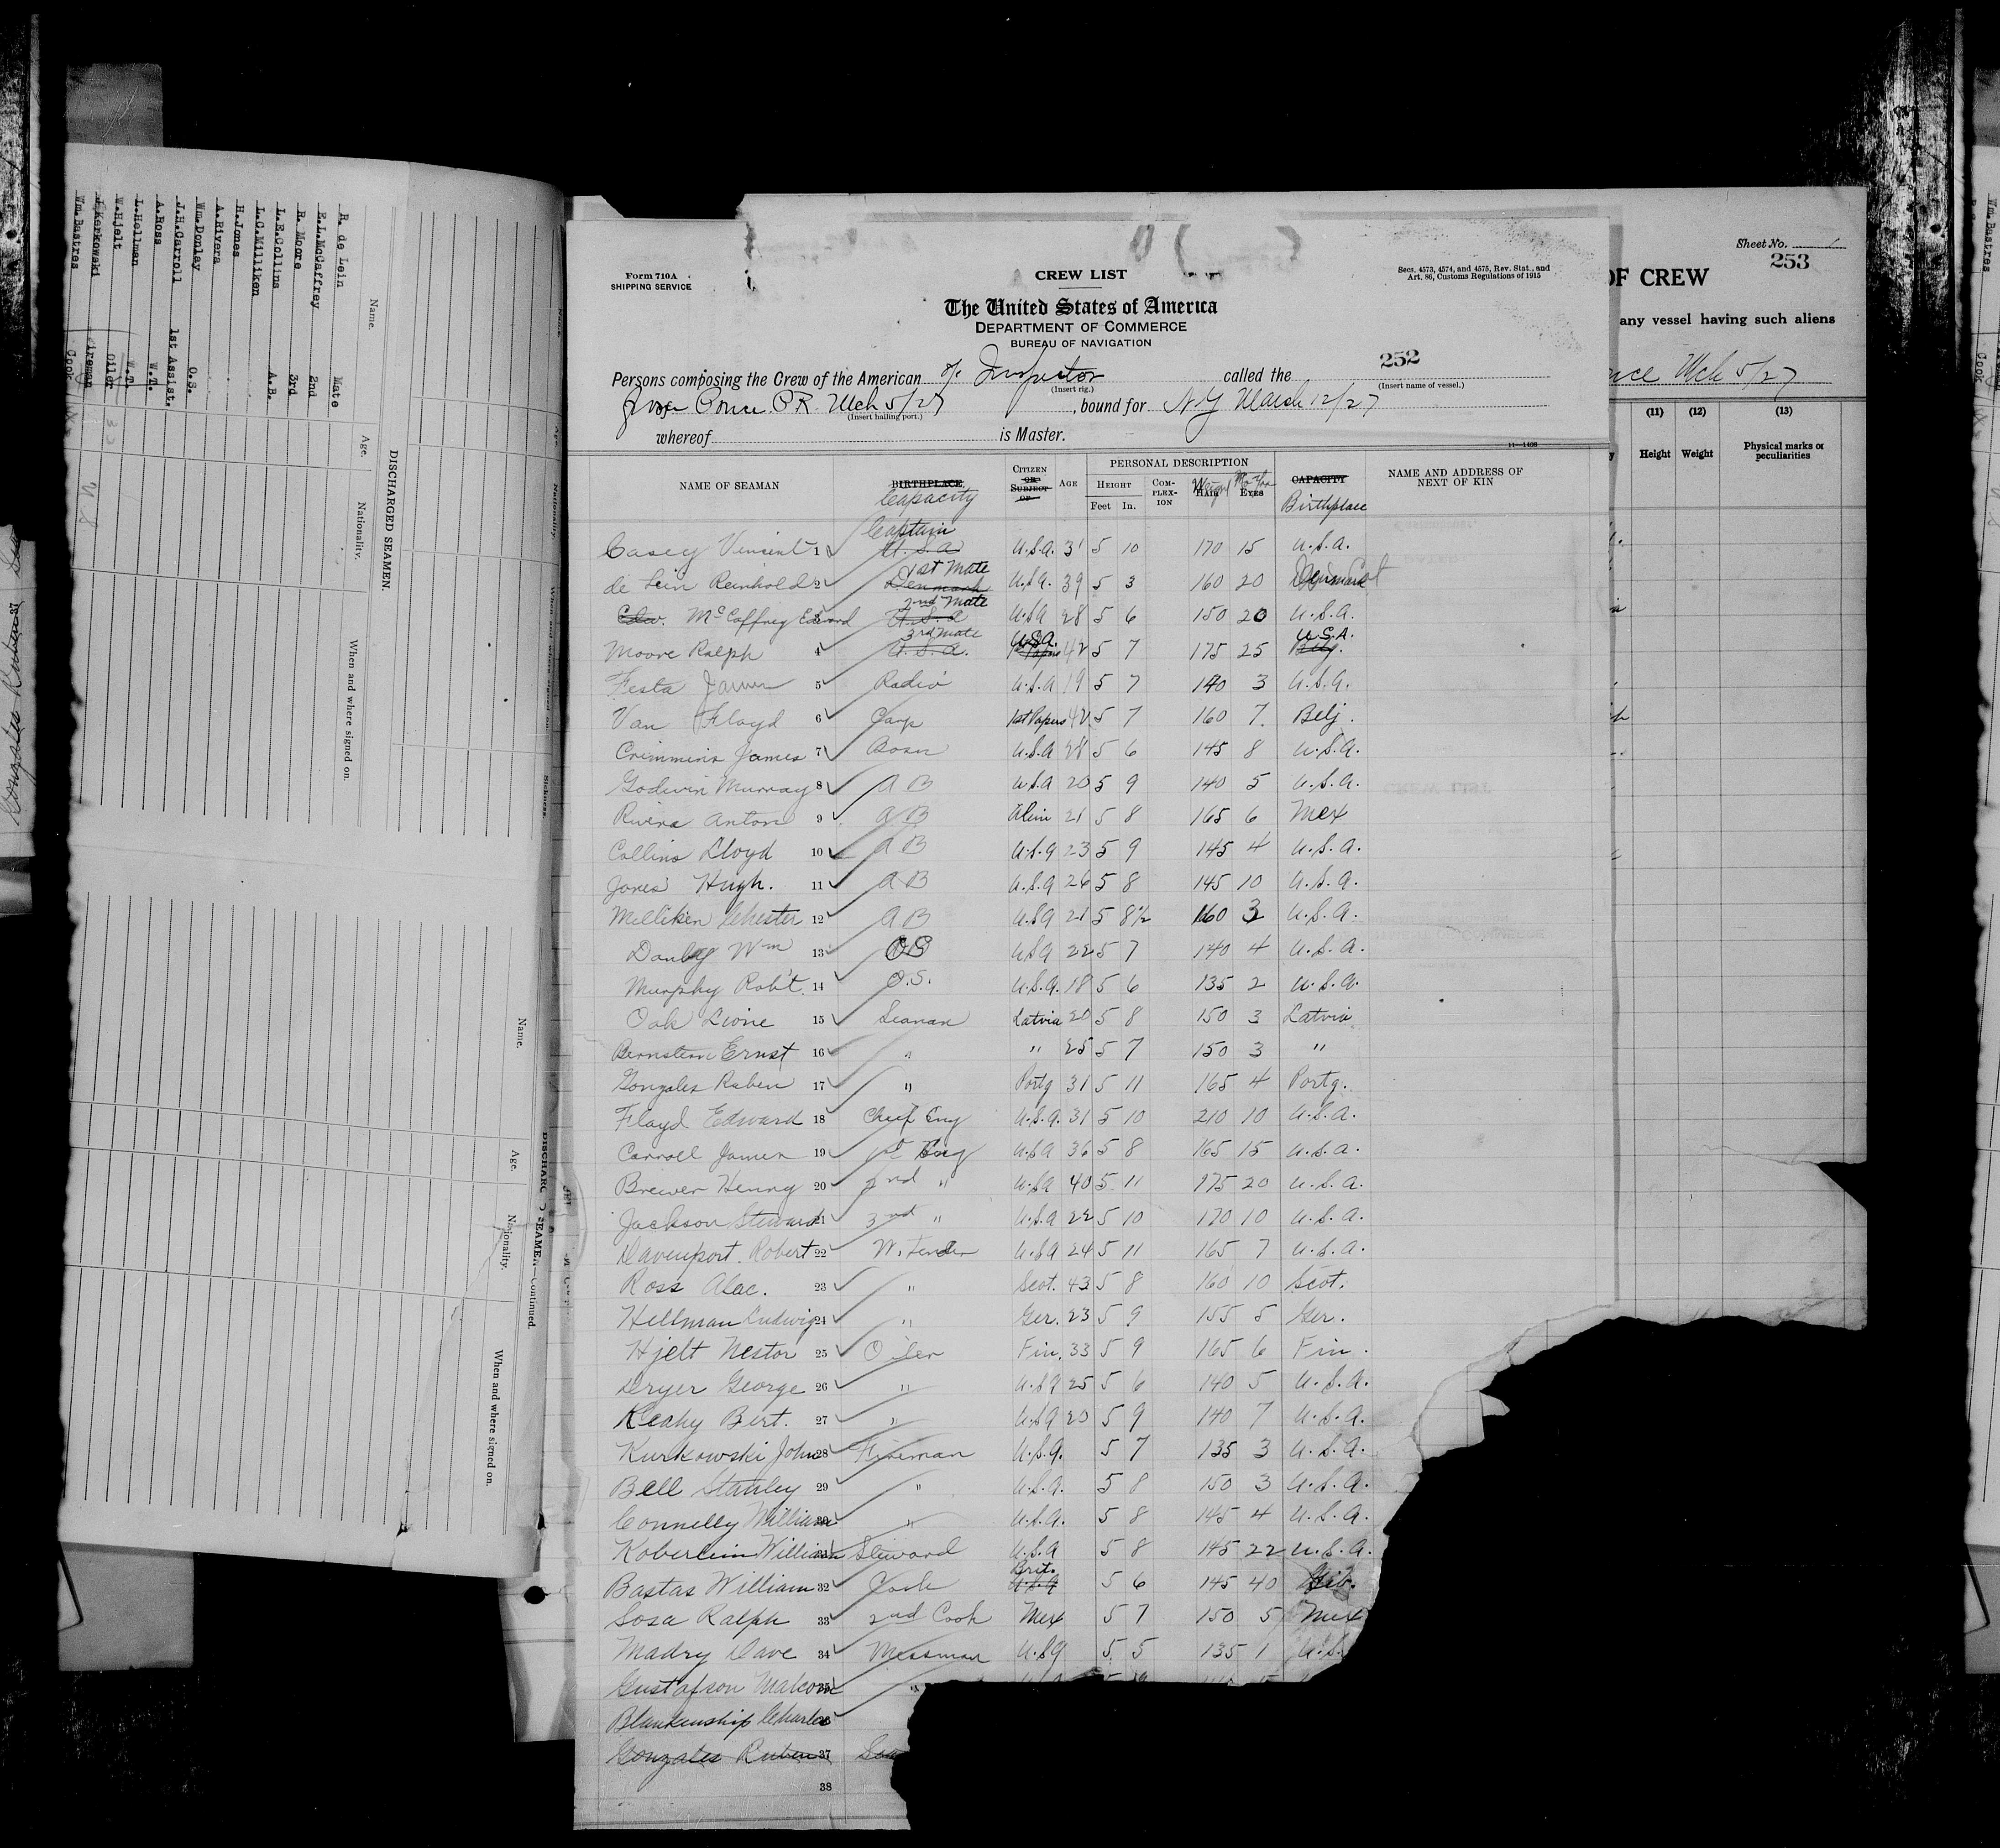 Form 710A
SHIPPING SERVICE
CREW LIST
Secs. 4573, 4574, and 4575, Rev. Stat., and
Art. 86, Customs Regulations of 1915
The United States of America
DEPARTMENT OF COMMERCE
BUREAU OF NAVIGATION
252
Persons composing the Crew of the American Inspector called the
(Insert rig.) (Insert name of vessel.)
from Ponce P.R. Mch 5/27, bound for N Y March 12/27
(Insert hailing port.)
whereof is Master.
11—1438
NAME OF SEAMAN BIRTHPLACE Capacity CITIZEN OR SUBJECT OF AGE PERSONAL DESCRIPTION HEIGHT Feet In. COMPLEXION HAIR Weight EYES CAPACITY Birthplace NAME AND ADDRESS OF NEXT OF KIN
Casey Vincent 1 U.S.A Captain U.S.A. 31 5 10 170 15 U.S.A.
de Lein Reinhold 2 Denmark 1st Mate U.S.A. 39 5 3 160 20 Denmark
McCaffrey Edward 3 U.S.A 2nd Mate U.S.A 28 5 6 150 20 U.S.A.
Moore Ralph 4 U.S.A. 3rd Mate U.S.A. 1st Papers 42 5 7 175 25 U.S.A. Belg.
Festa James 5 Radio U.S.A 19 5 7 140 3 U.S.A.
Van Floyd 6 Carp 1st Papers 42 5 7 160 7 Belj.
Crimmins James 7 Bosn U.S.A 28 5 6 145 8 U.S.A.
Godwin Murray 8 AB U.S.A 20 5 9 140 5 U.S.A.
Rivera Anton 9 AB Alien 21 5 8 165 6 Mex
Collins Lloyd 10 AB U.S.A 23 5 9 145 4 U.S.A.
Jones Hugh. 11 AB U.S.A 26 5 8 145 10 U.S.A.
Milliken Chester 12 AB U.S.A 21 5 8½ 160 3 U.S.A.
Donley Wm 13 OS U.S.A 22 5 7 140 4 U.S.A.
Murphy Rob't. 14 O.S. U.S.A. 18 5 6 135 2 U.S.A.
Oak Lione 15 Seaman Latvia 20 5 8 150 3 Latvia
Bernstein Ernst 16 " " 25 5 7 150 3 "
Gonzales Ruben 17 " Portg 31 5 11 165 4 Portg.
Floyd Edward 18 Chief Eng U.S.A. 31 5 10 210 10 U.S.A.
Carroll James 19 1st Eng U.S.A 36 5 8 165 15 U.S.A.
Brewer Henry 20 2nd " U.S.A 40 5 11 175 20 U.S.A.
Jackson Steward 21 3rd " U.S.A 22 5 10 170 10 U.S.A.
Davenport. Robert 22 W. Tender U.S.A 24 5 11 165 7 U.S.A.
Ross Alec. 23 " Scot. 43 5 8 160 10 Scot.
Hellman Ludwig 24 " Ger. 23 5 9 155 5 Ger.
Hjelt Nestor 25 Oiler Fin. 33 5 9 165 6 Fin.
Dryer George 26 " U.S.A 25 5 6 140 5 U.S.A.
Keahy Bert. 27 " U.S.A 20 5 9 140 7 U.S.A.
Kurkowski John 28 Fireman U.S.A. 5 7 135 3 U.S.A.
Bell Stanley 29 " U.S.A. 5 8 150 3 U.S.A.
Connelly William 30 " U.S.A. 5 8 145 4 U.S.A.
Koberlein William 31 Steward U.S.A 5 8 145 22 U.S.A.
Bastas William 32 Cook Brit. U.S.A 5 6 145 40
Sosa Ralph 33 2nd Cook Mex 5 7 150 5 Mex
Madry Dave 34 Messman U.S.A 5 5 135 1 U.S.
Gustafson Malcom 35 "
Blankenship Charles 36
Gonzales Ruben 37 Sea
38
Sheet No. 1
253
OF CREW
any vessel having such aliens
nce Mch 5/27
(11) (12) (13)
Height Weight Physical marks or peculiarities
DISCHARGED SEAMEN.
Name. Age. Nationality. When and where signed on.
R. de Lein Mate
E.L.McCaffrey 2nd
R. Moore 3rd
L.E.Collins A.B.
L.C.Milliken
H.Jones
A.Rivera
Wm.Donley O.S.
J.H.Carroll 1st Assist.
A.Ross W.T.
L.Hellman W.T.
W.Hjelt Oiler
J.Kerkowski Fireman
Wm.Bastres Cook
DISCHARGED SEAMEN—Continued.
Name. Age. Nationality. When and where signed on.
Gonzales Ruben 37
Wm.Bastres
Cook